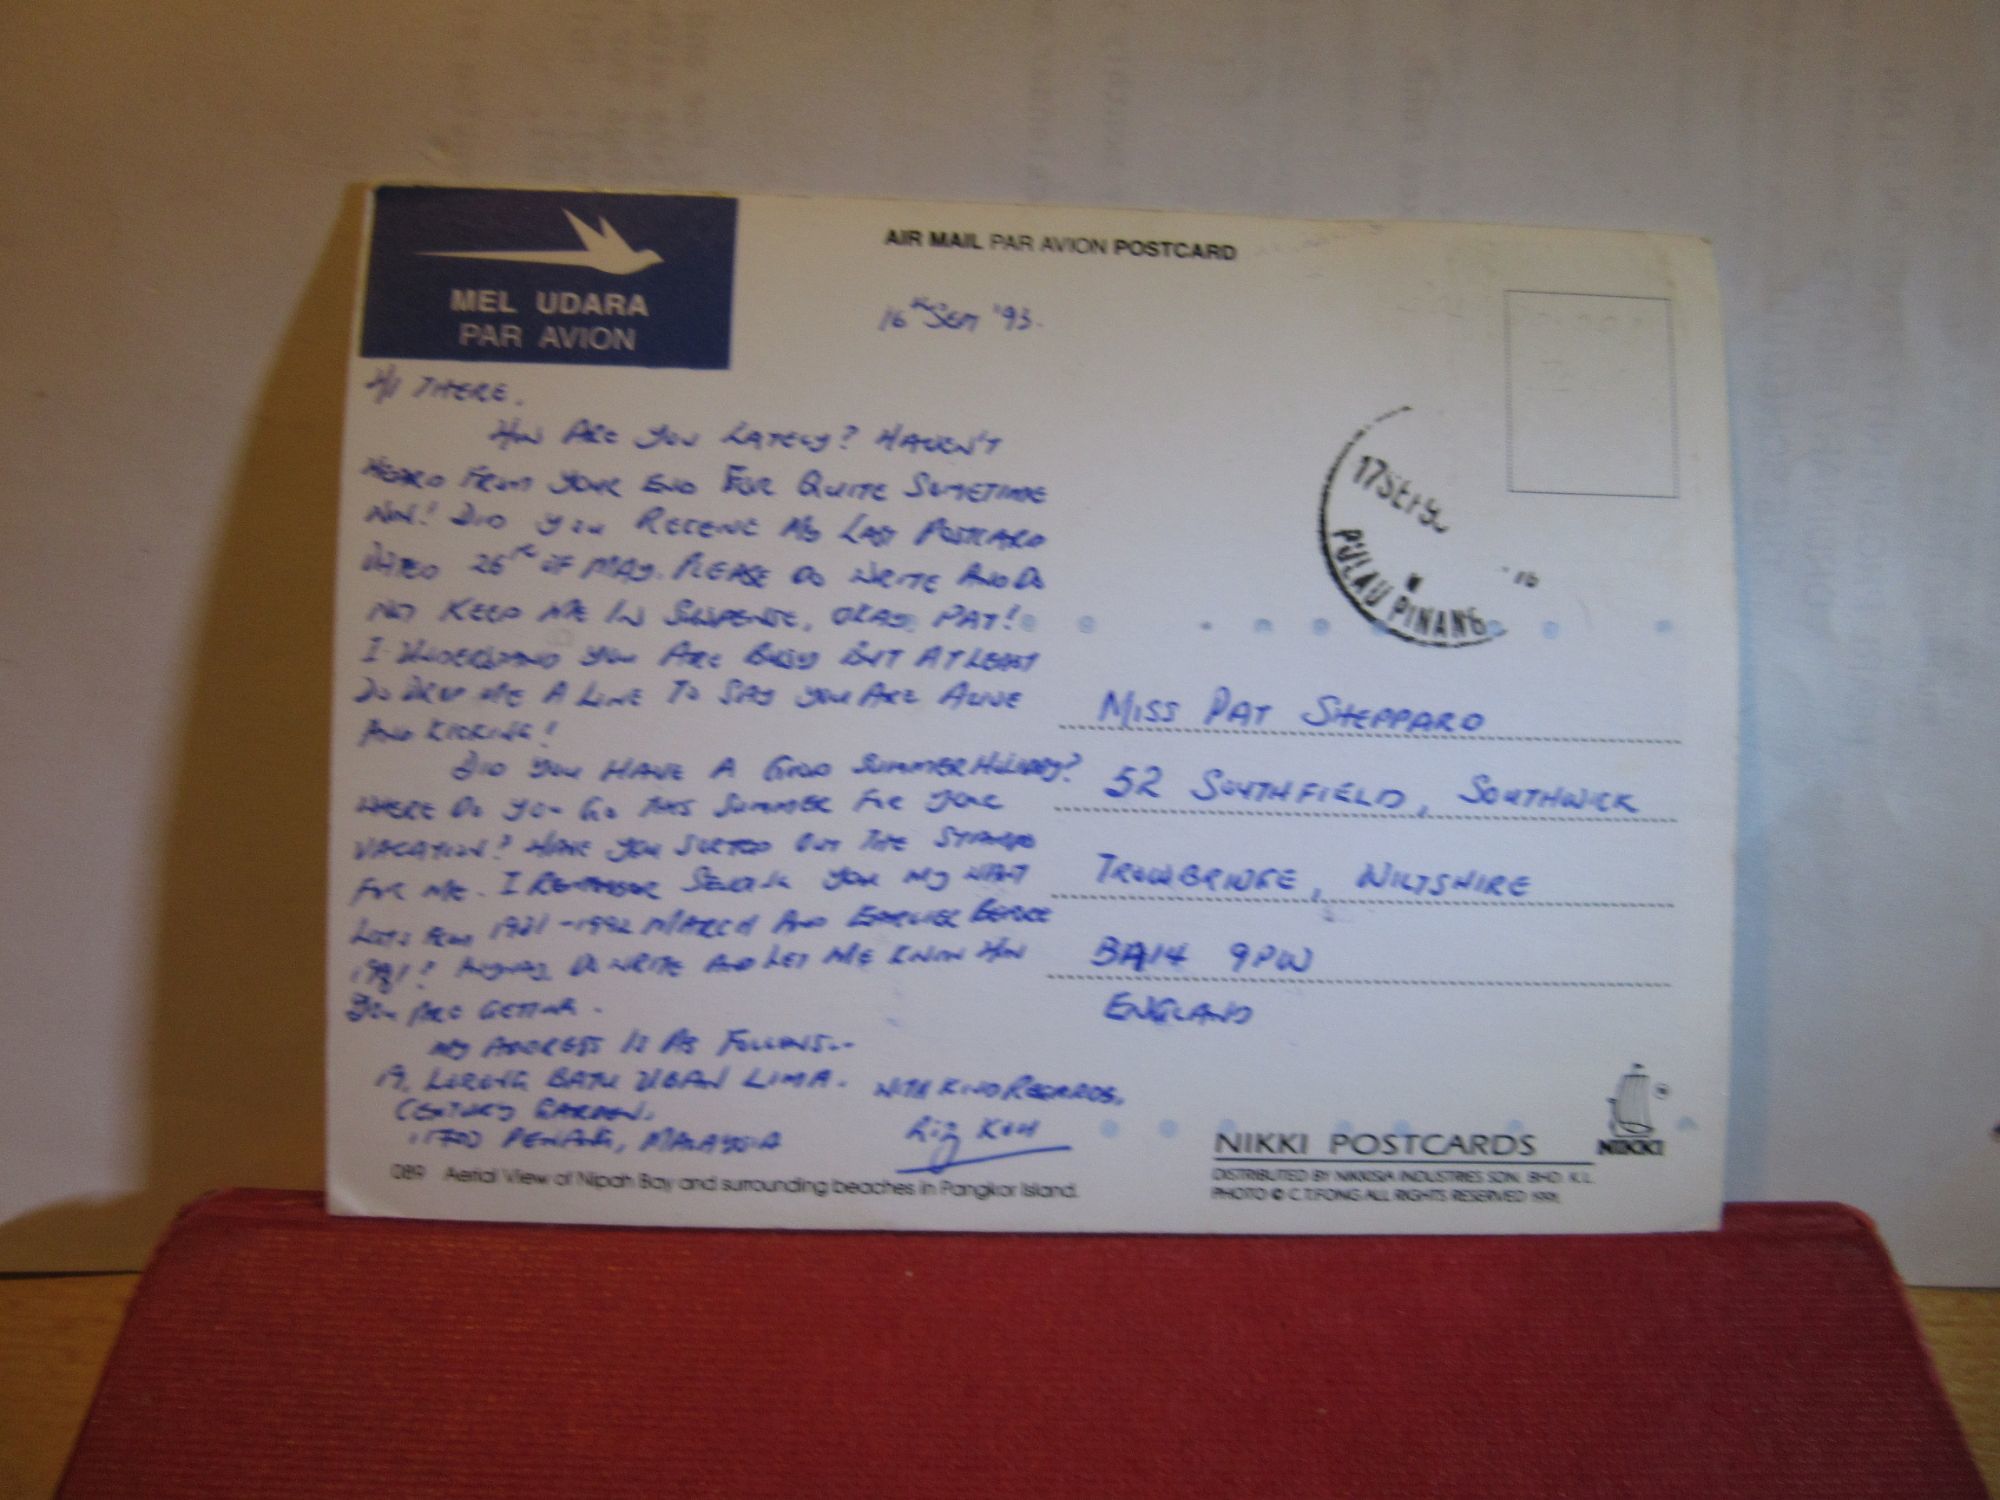 MEL UDARA
PAR AVION
AIR MAIL PAR AVION POSTCARD
16th SEPT '93.
HI THERE,
HOW ARE YOU LATELY? HAVEN'T
HEARD FROM YOUR END FOR QUITE SOMETIME
NOW! DID YOU RECEIVE MY LAST POSTCARD
DATED 26TH OF MAY. PLEASE DO WRITE AND DO
NOT KEEP ME IN SUSPENSE, OKAY, PAT!
I UNDERSTAND YOU ARE BUSY BUT AT LEAST
DO DROP ME A LINE TO SAY YOU ARE ALIVE
AND KICKING!
DID YOU HAVE A GOOD SUMMER HOLIDAY?
WHERE DO YOU GO THIS SUMMER FOR YOUR
VACATION? HAVE YOU SORTED OUT THE STAMPS
FOR ME. I REMEMBER SENDING YOU MY WANT
LISTS FROM -1992 MARCH AND EARLIER BEFORE
ANYWAY, DO WRITE AND LET ME KNOW HOW
YOU ARE GETTING.
MY ADDRESS IS AS FOLLOWS..
19, LORONG BATU UBAN LIMA.
CENTURY GARDEN,
11700 PENANG, MALAYSIA
WITH KIND REGARDS,
KOH
089 Aerial View of Nipah Bay and surrounding beaches in Pangkor Island.
17 SEP 9
PULAU PINANG
MISS PAT SHEPPARD
52 SOUTHFIELD, SOUTHWICK
TROWBRIDGE, WILTSHIRE
BA14 9PW
ENGLAND
NIKKI
NIKKI POSTCARDS
DISTRIBUTED BY NIKKISIA INDUSTRIES SDN. BHD. K.L.
PHOTO © C.T.FONG ALL RIGHTS RESERVED 1991.